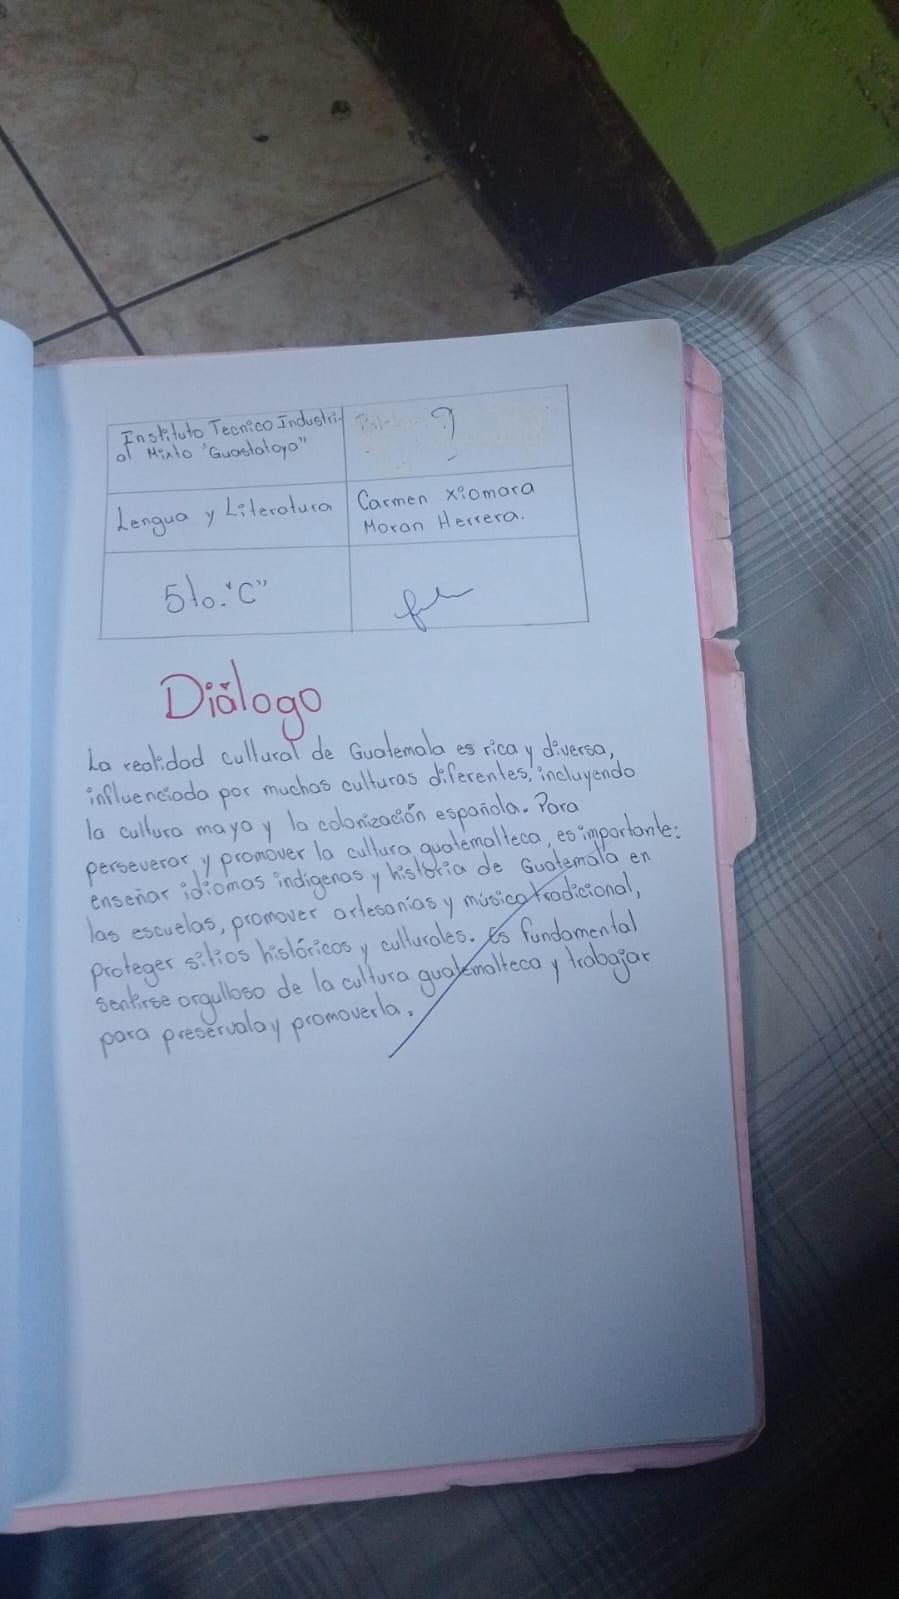 Instituto Tecnico Industri-
al Mixto "Guastatoya"
?
Lengua y Literatura
Carmen Xiomara
Moran Herrera.
5to. "C"
Diálogo
La realidad cultural de Guatemala es rica y diversa,
influenciada por muchas culturas diferentes, incluyendo
la cultura maya y la colonización española. Para
perseverar y promover la cultura guatemalteca, es importante:
enseñar idiomas indígenas y historia de Guatemala en
las escuelas, promover artesanías y música tradicional,
proteger sitios históricos y culturales. Es fundamental
sentirse orgulloso de la cultura guatemalteca y trabajar
para preservala y promoverla.